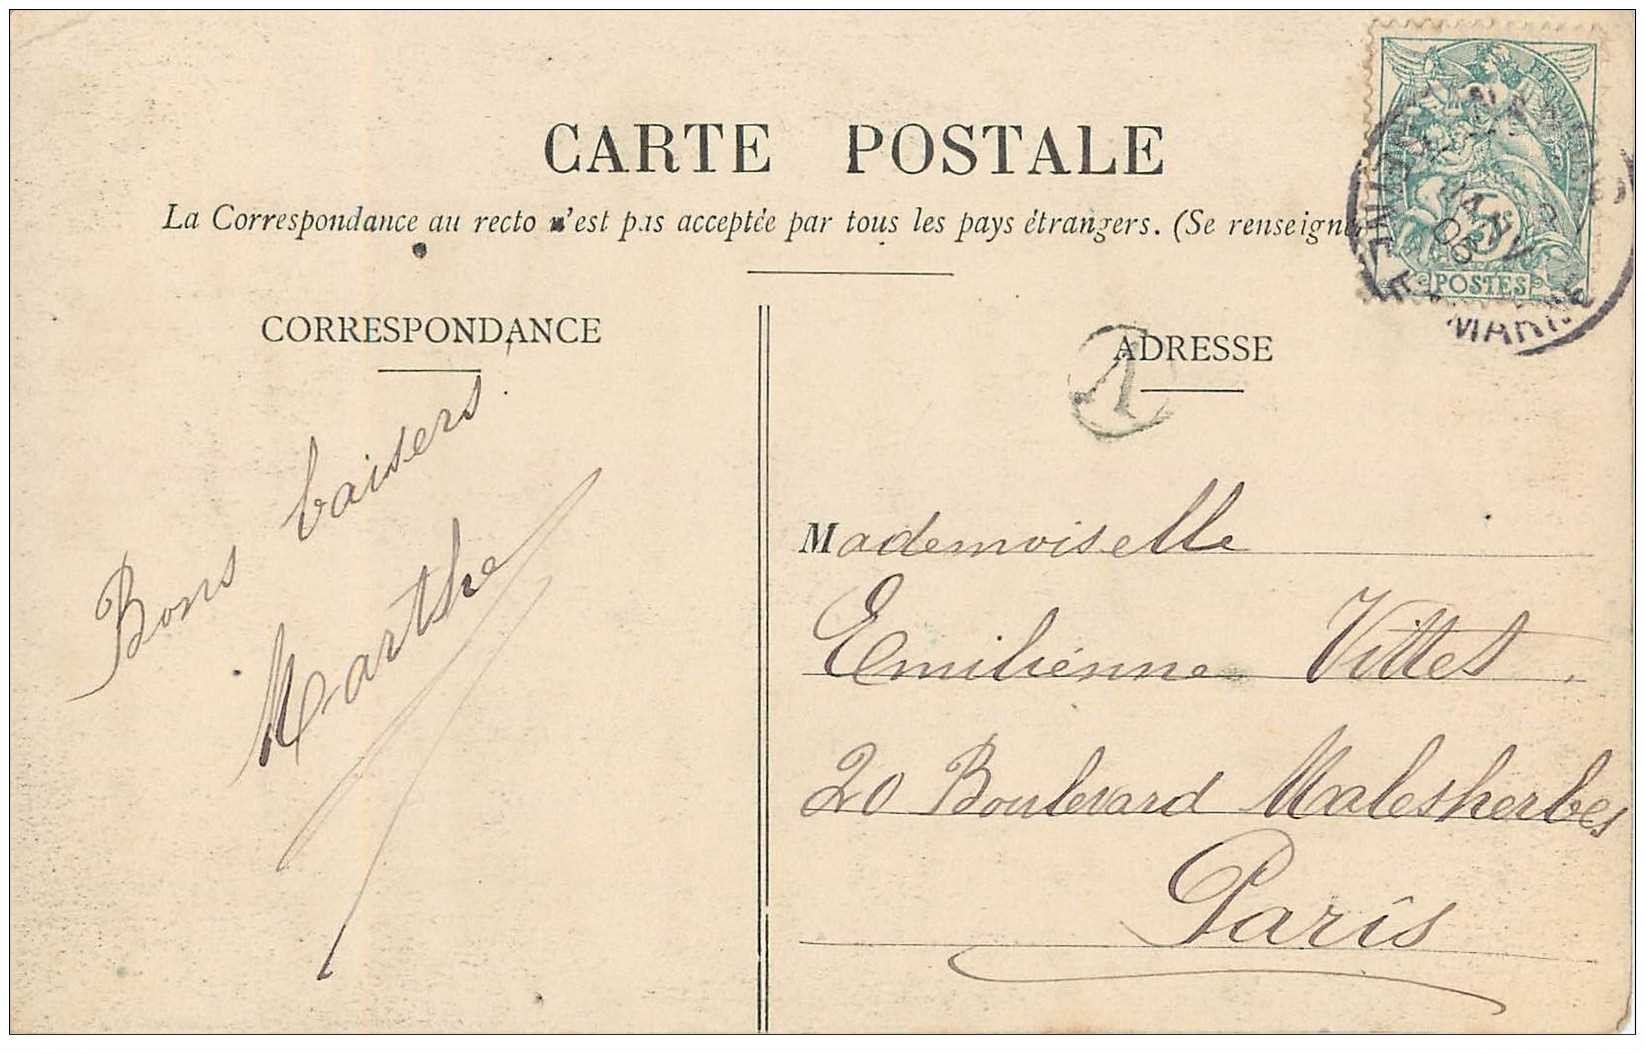 CARTE POSTALE
La Correspondance au recto n'est pas acceptée par tous les pays étrangers. (Se renseign
CORRESPONDANCE
ADRESSE
Bons baisers
Marthe
Mademoiselle
Emilienne Vittet
20 Boulevard Malesherbes
Paris
5
POSTES
JANV
05
MARNE